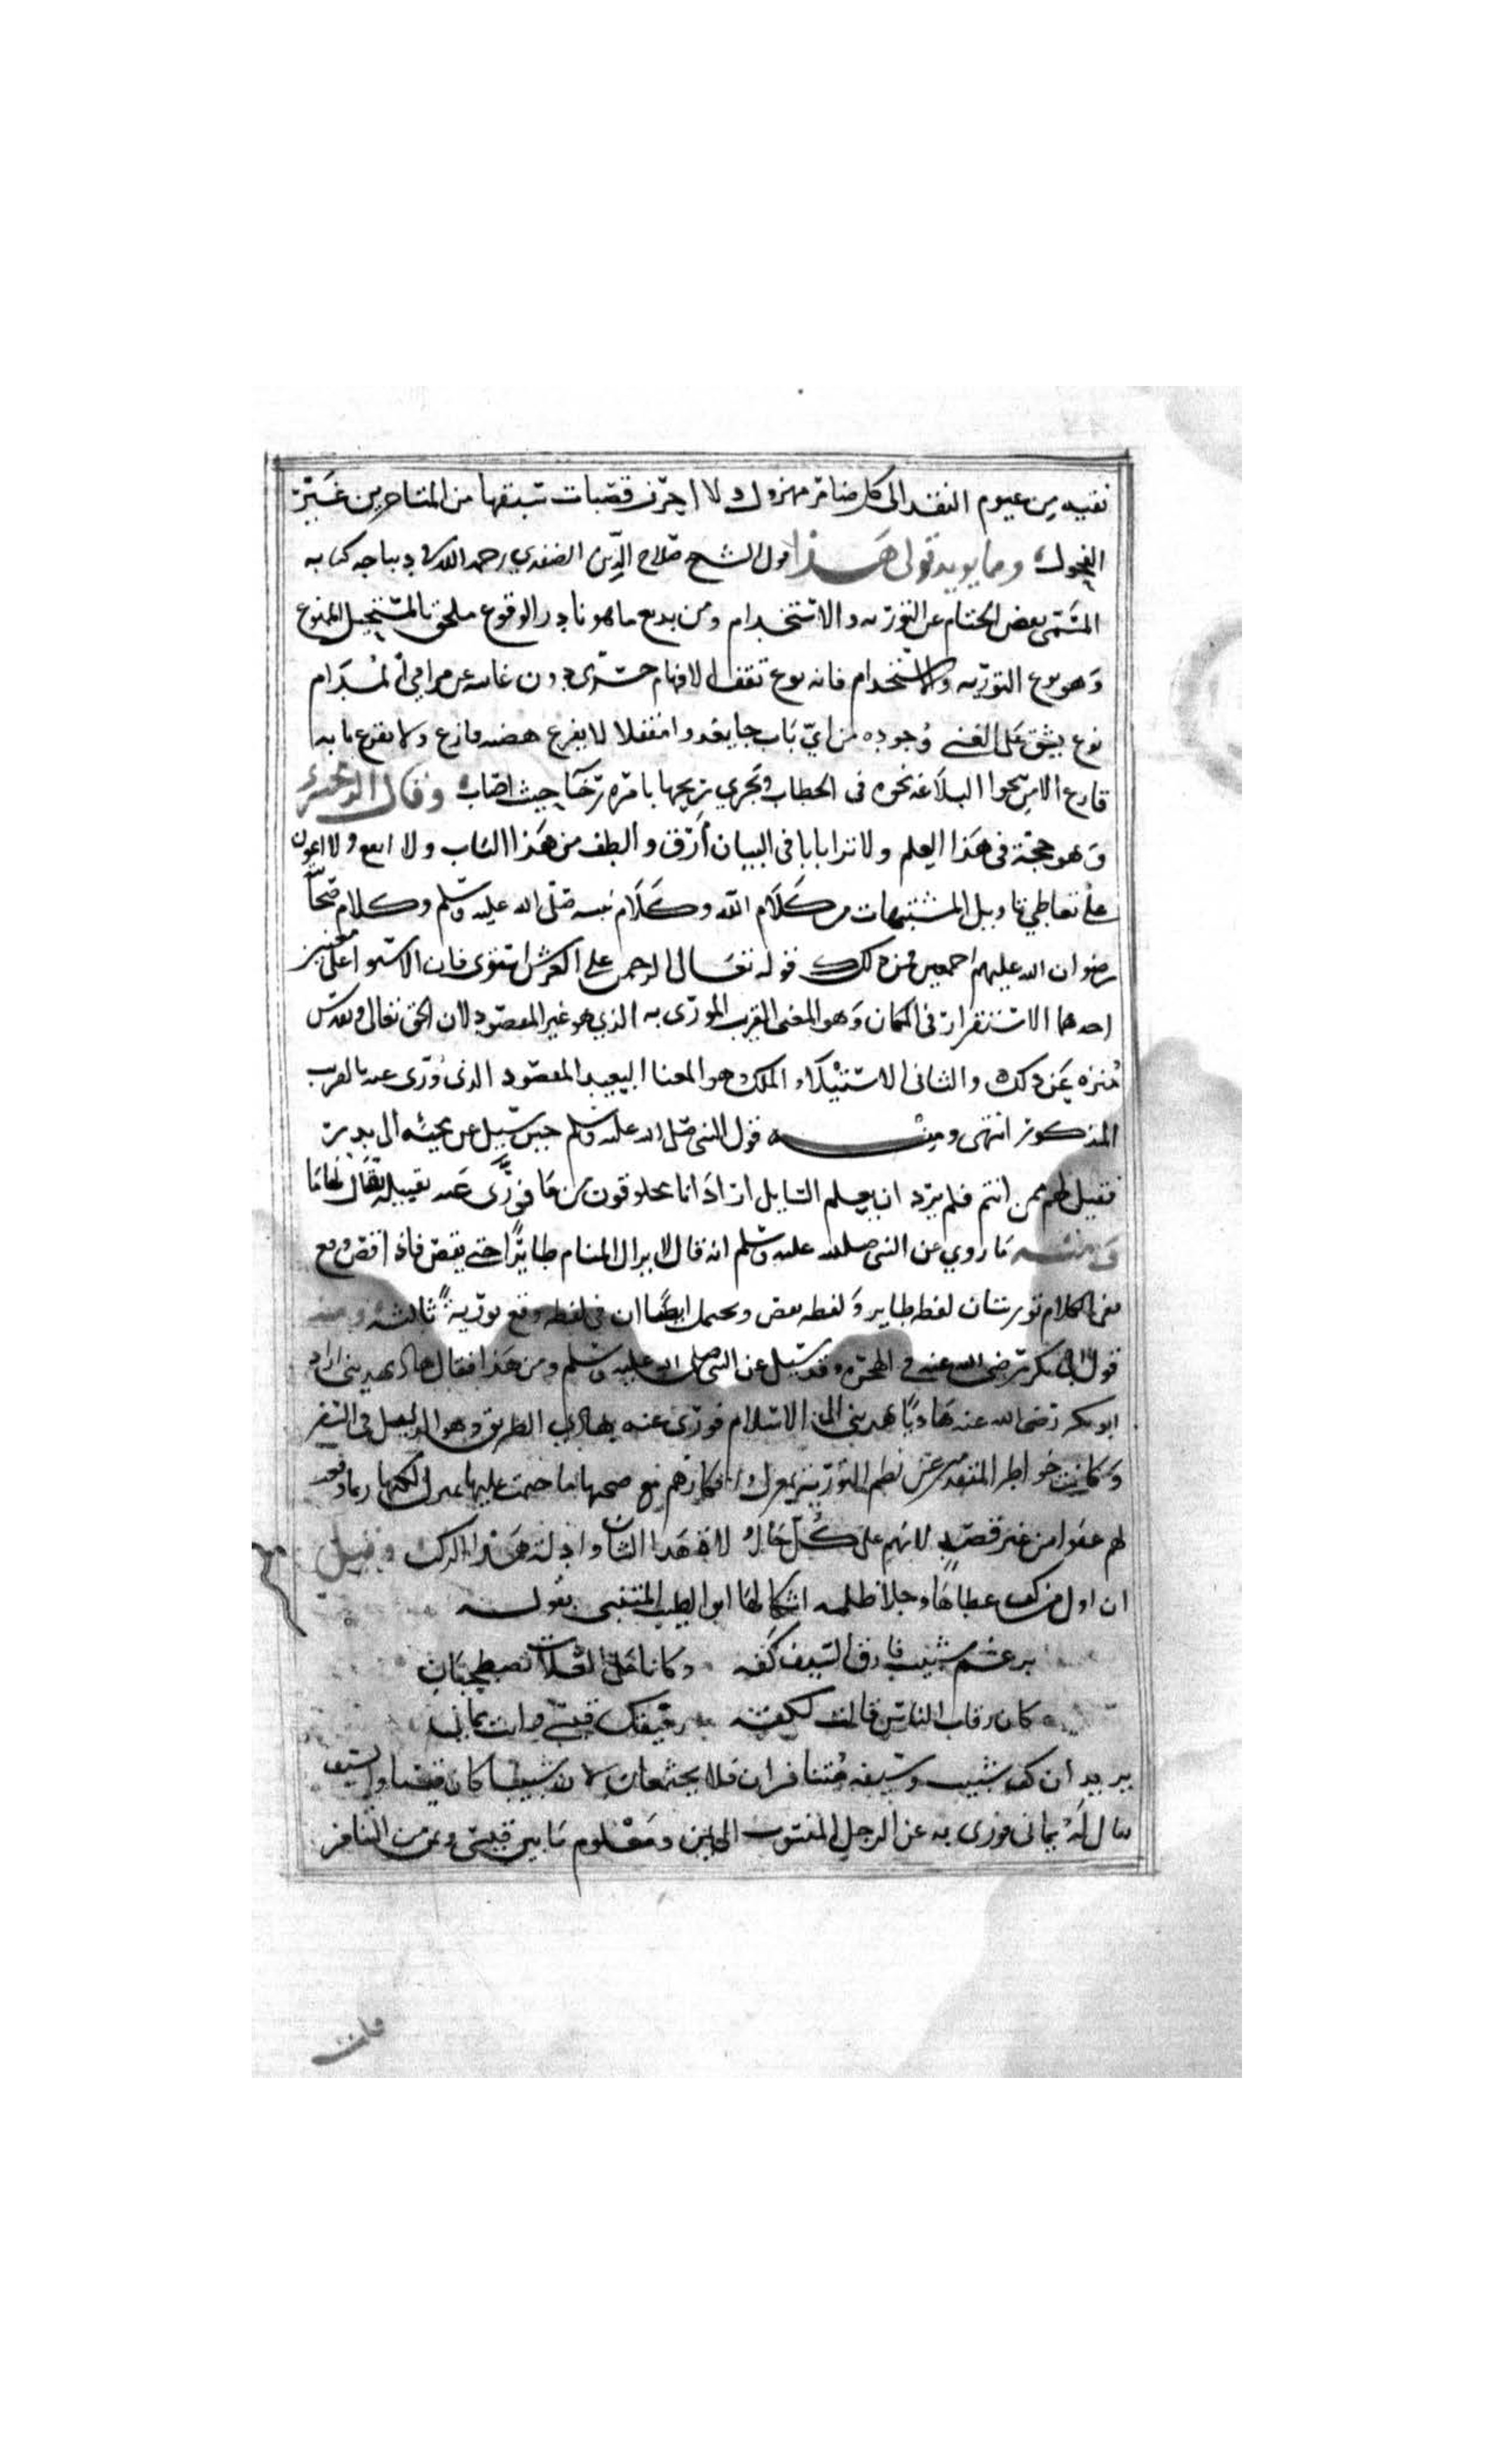 نفيه من عموم النقد الى كل ضامر مهزول ولا احرز قصبات سبقها من المتاخرين غير
الفحول ومما يويد قولي هذا قول الشيخ صلاح الدين الصفدي رحمه الله في ديباجه كتابه
المسمى بفض الختام عن التوريه والاستخدام ومن بديع ما هو نادر الوقوع ملحق بالمستحيل الممنوع
وهو نوع التوريه والاستخدام فانه نوع تقف الافهام حسرى دون غايته عن مرامي المرام
نوع يشق على الفتى وجوده من اي باب جا يغدوا مقفلا لا يفرع هضبه فارع ولا يقرع بابه
قارع الا من تنحوا البلاغه نحوه في الخطاب وتجري ريحها بامره رخا حيث اصاب وقال الزمخشري
وهو حجة في هذا العلم ولا نرا بابا في البيان ادق والطف من هذا الباب ولا انفع ولا اعون
على تعاطي تاويل المشتبهات من كلام الله وكلام نبيه صلى الله عليه وسلم وكلام صحابته
رضوان الله عليهم اجمعين فمن ذلك قوله تعالى الرحمن على العرش استوى فان الاستوا على معنيين
احدهما الاستقرار في المكان وهو المعنى القريب المورى به الذي هو غير المقصود لان الحق تعالى وتقدس
منزه عن ذلك والثاني الاستيلاء والملك وهو المعنا البعيد المقصود الذي ورى عنه بالقريب
المذكور انتهى ومنه قول النبي صلى الله عليه وسلم حين سيل عن مجيئه الى بدر
فقيل لهم ممن انتم فلم يرد ان يعلم السايل اراد انا مخلوقون من ما فورى عنه بقبيلة يقال لها ما
ومنه ما روي عن النبي صلى الله عليه وسلم انه قال لا يزال المنام طايرا حتى يقص فاذا قص وقع
ففي الكلام توريتان لفظه طاير ولفظه يقص ويحتمل ايضا ان في لفظه وقع تورية ثالثة ومنه
قول ابي بكر رضي الله عنه في الهجره وقد سيل عن النبي صلى الله عليه وسلم ومن هذا فقال هاد يهديني اراد
ابو بكر رضي الله عنه هاديا يهديني الى الاسلام فورى عنه بهادي الطريق وهو الدليل في السفر
وكانت خواطر المتقدمين عن نظم التورية بمعزل وافكارهم مع صحتها ما خيمت عليها بمنزل لكنها ربما وقعت
لهم عفوا من غير قصد لانهم على كل حال لا هذا الشان وادلة هذا الركب وقيل
ان اول من كشف غطاها وجلا ظلمة اشكالها ابو الطيب المتنبي بقوله
برغم شبيب فارق السيف كفه وكانا على العلات يصطحبان
كان رقاب الناس قالت لكفه رفيقك قيسي وانت يماني
يريد ان كف شبيب وسيفه متنافران فلا يجتمعان لان شبيبا كان قيسيا والسيف
يقال له يماني فورى به عن الرجل المنسوب الى اليمن ومعلوم ما بين قيس ويمن من التنافر
فانت